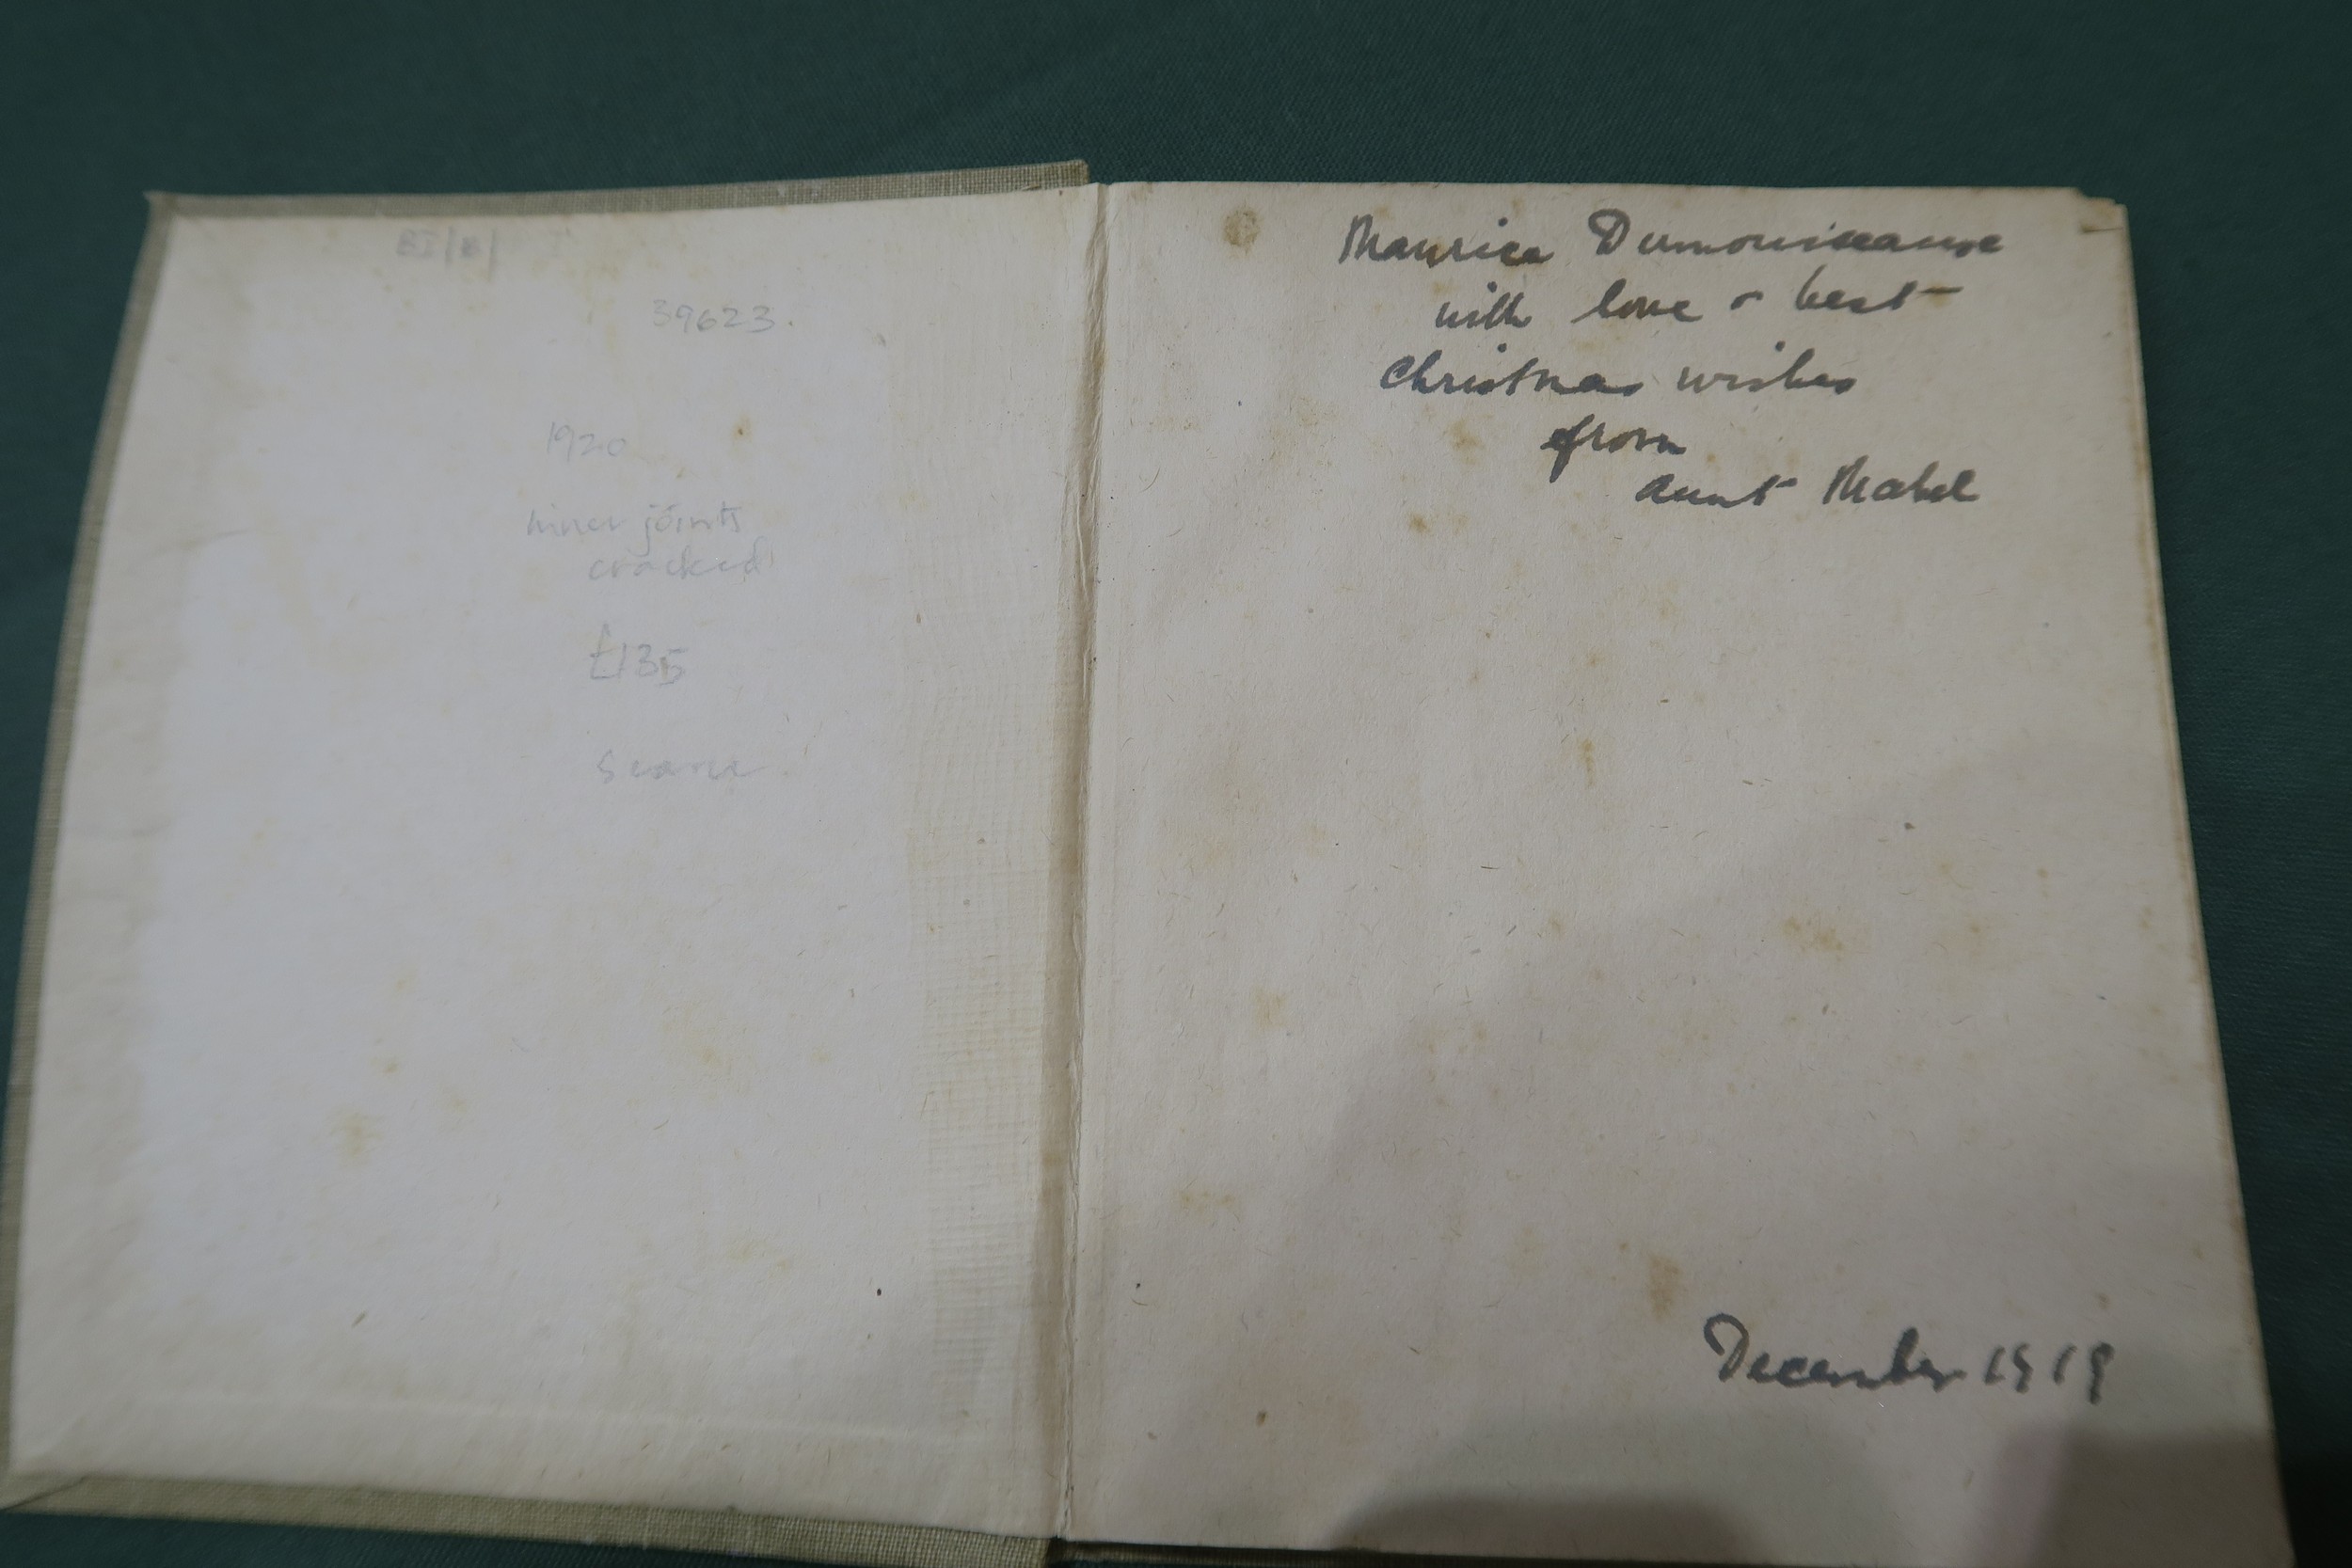 39623.
1920
inner joints
cracked
£135
scarce
Maurice
with love & best
Christmas wishes
from
Aunt Mabel
December 1919